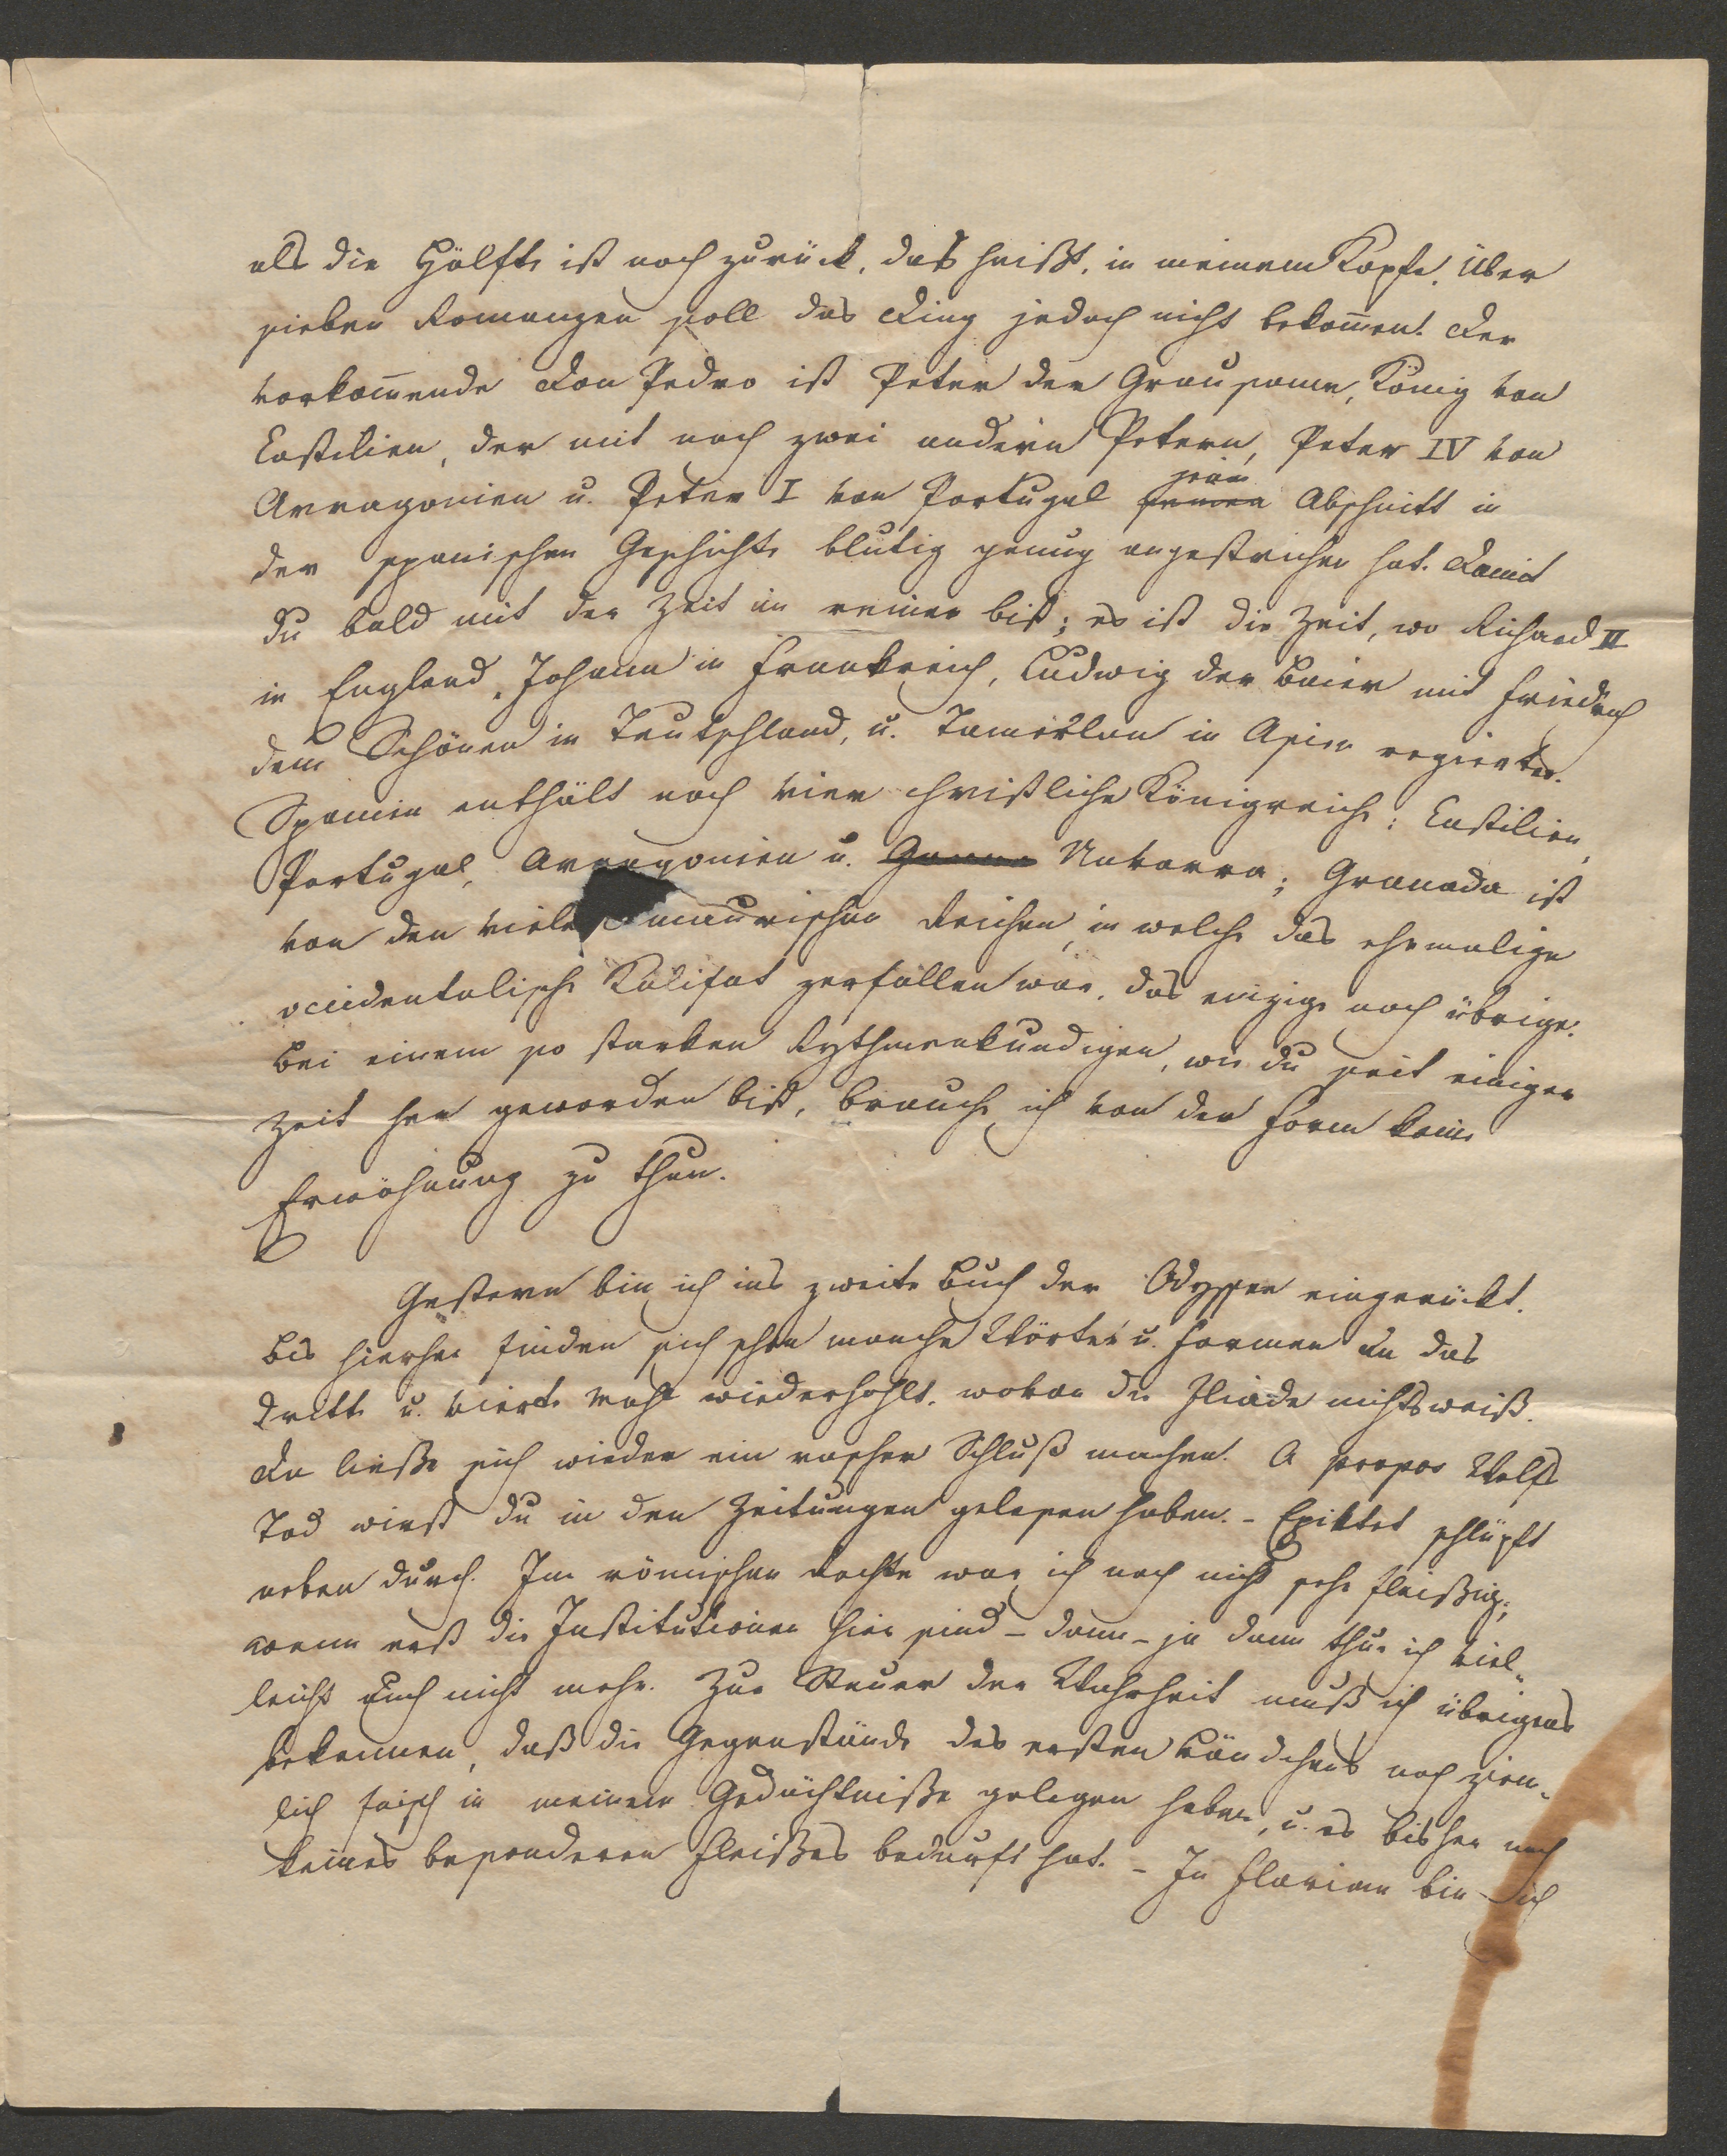 als die Hälfte ist noch zurück, das heißt, in meinem Kopfe. Über
sieben Romanzen soll das Ding jedoch nicht bekom̄en. Der
vorkom̄ende Don Pedro ist Peter der Grausame, König von
Castilien, der mit noch zwei andern Petern, Peter IV von
Arragonien u. Peter I von Portugal Abschnitt in
der spanischen Geschichte blutig genug angestrichen hat. Damit
du bald mit der Zeit im reinen bist; es ist die Zeit, wo Richard II
in England, Johann in Frankreich, Ludwig der Baier mit Friedrich
dem Schönen in Teutschland, u. Tamerlan in Asien regierten.
Spanien enthält noch vier christliche Königreiche: Castilien,
Portugal, Arragonien u. Navarra; Granada ist
von den vielen maurischen Reichen, in welche das ehemalige
occidentalische Kalifat zerfallen war, das einzige noch übrige.
Bei einem so starken Rythmenkundigen, wie du seit einiger
Zeit her geworden bist, brauche ich von der Form keine
Erwähnung zu thun.
Gestern bin ich ins zweite Buch der Odyssee eingerückt.
Bis hierher finden sich schon manche Wörter u. Formen an das
dritte u. vierte Mahl wiederhohlt, wovon die Iliade nichts weiß.
Da ließe sich wieder ein rascher Schluß machen. A propos Wolfs
Tod wirst du in den Zeitungen gelesen haben. - Epiktet schlüpft
neben durch. Im römischen Rechte war ich noch nicht sehr fleißig;
wenn erst die Institutionen hier sind - dann - ja dann thue ich viel„
leicht auch nicht mehr. Zur Steuer der Wahrheit muß ich übrigens
bekennen, daß die Gegenstände des ersten Bändchens noch ziem„
lich frisch in meinem Gedächtniße gelegen haben, u. es bisher noch
keines besonderen Fleißes bedurft hat. - In Florian bin ich